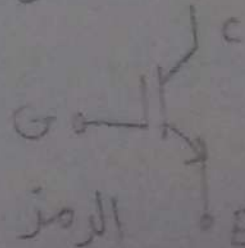 C
G
الرمز
E